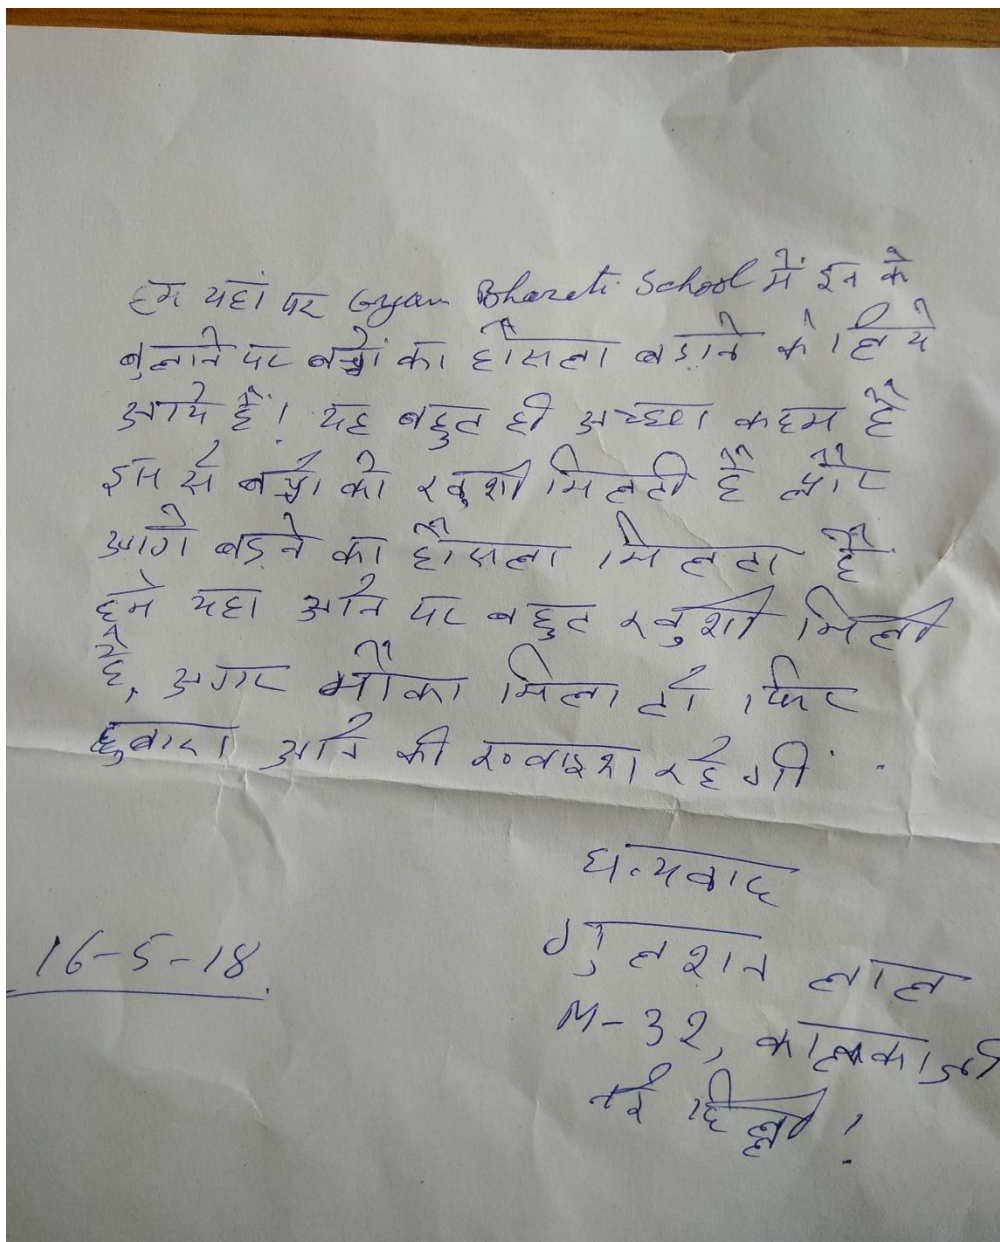 हम यहां पर Gyan Bharati School में इन के
बुलाने पर बच्चों का हौसला बडाने के लिये
आये हैं। यह बहुत ही अच्छा कदम है
इस से बच्चों को खुशी मिलती है और
आगे बड़ने का हौसला मिलता है
हमे यहा आने पर बहुत खुशी मिली
है, अगर मौका मिला तो फिर
दुबारा आने की ख्वाइश रहेगी .
धन्यवाद
गुलशन लाल
16-5-18
M-32, कालकाजी
नई दिल्ली !